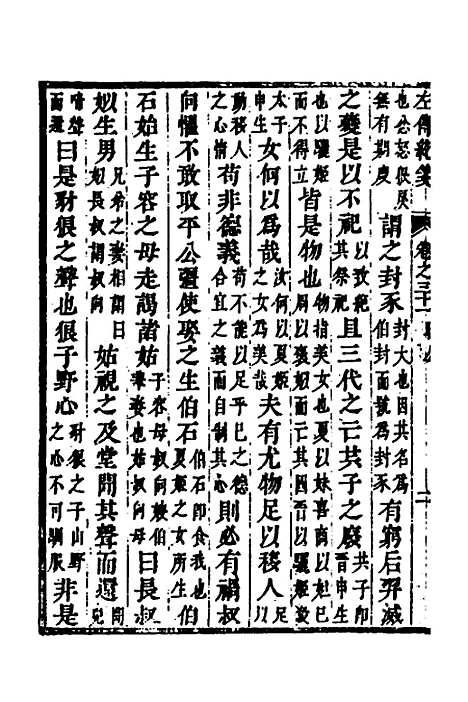 左傳統箋　卷之三十一　昭公　二
也忿怒狠戾無有期度謂之封豕封大也因其名為伯封而號為封豕有窮后羿滅
之夔是以不祀以致絶其祭祀且三代之亡共子之廢共子即晉申生
也以驪姬而不得立皆是物也物指美女也夏以妹喜商以妲己周以褒姒而亡其國晉以驪姬殺
太子申生女何以為哉汝何以夏姬之女為美哉夫有尤物足以移人足以
動移人之心情苟非德義苟不能以足乎已之德合宜之義而自制其心則必有禍叔
向懼不敢取平公彊使娶之生伯石伯石即食我也夏姬之女所生伯
石始生子容之母走謁諸姑子容母叔向嫂伯華妻也姑叔向母曰長叔
姒生男兄弟之妻相謂曰姒長叔謂叔向姑視之及堂聞其聲而還聞兒
啼聲而還曰是豺狼之聲也狼子野心豺狼之子山野之心不可馴服非是